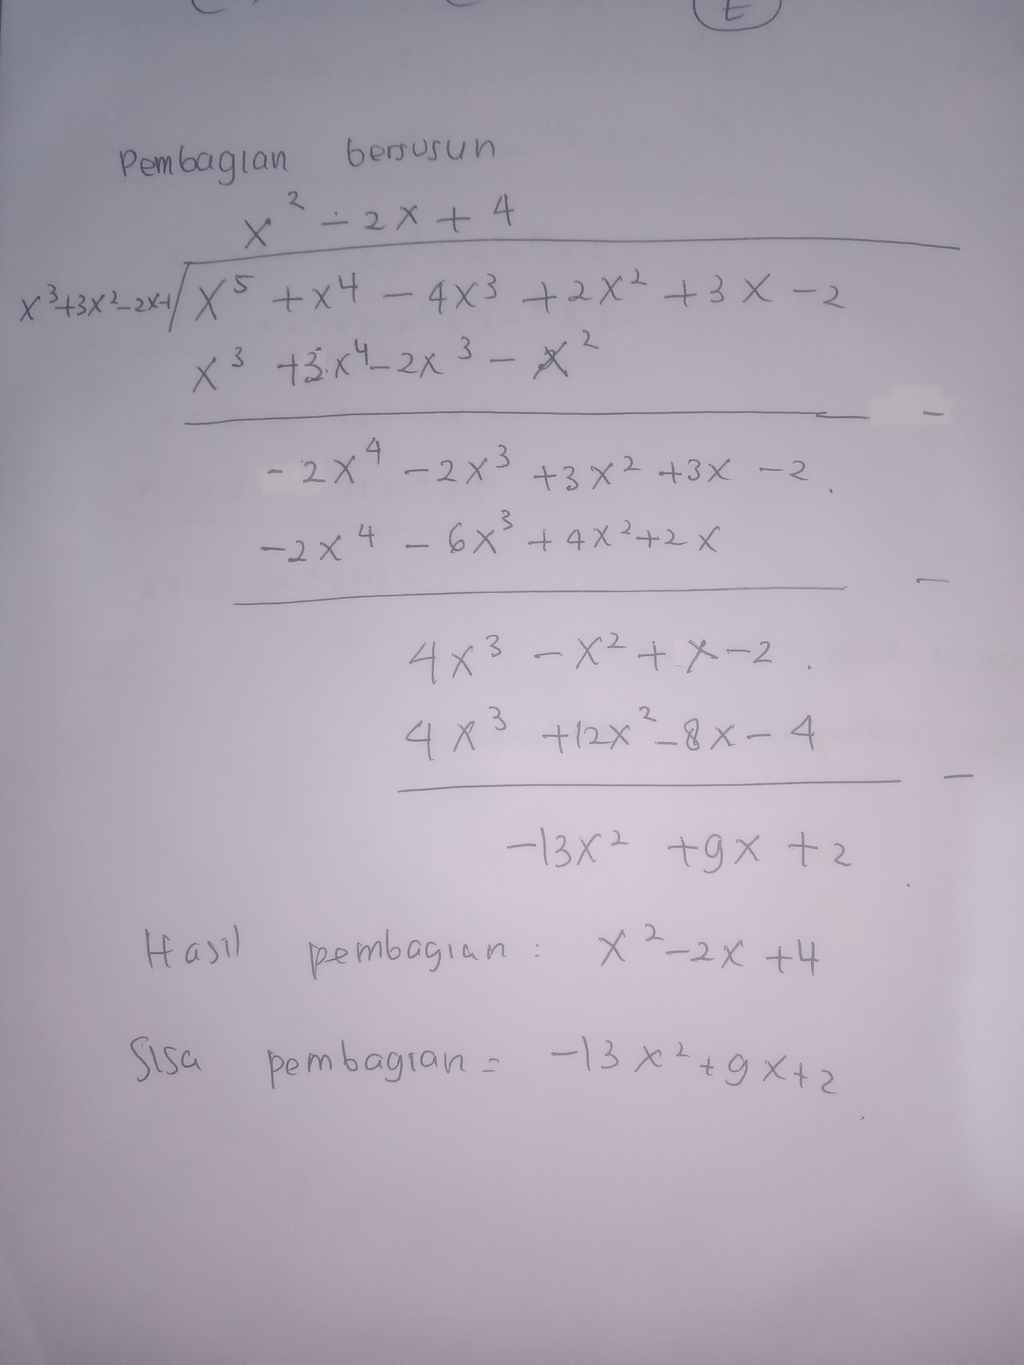 E
Pembagian bersusun
x² - 2x + 4
x³+3x²-2x-1 / x⁵ + x⁴ - 4x³ + 2x² + 3x - 2
x³ + 3x⁴ - 2x³ - x²
-
-2x⁴ - 2x³ + 3x² + 3x - 2.
-2x⁴ - 6x³ + 4x² + 2x
-
4x³ - x² + x - 2.
4x³ + 12x² - 8x - 4
-
-13x² + 9x + 2
Hasil pembagian : x² - 2x + 4
Sisa pembagian = -13x² + 9x + 2